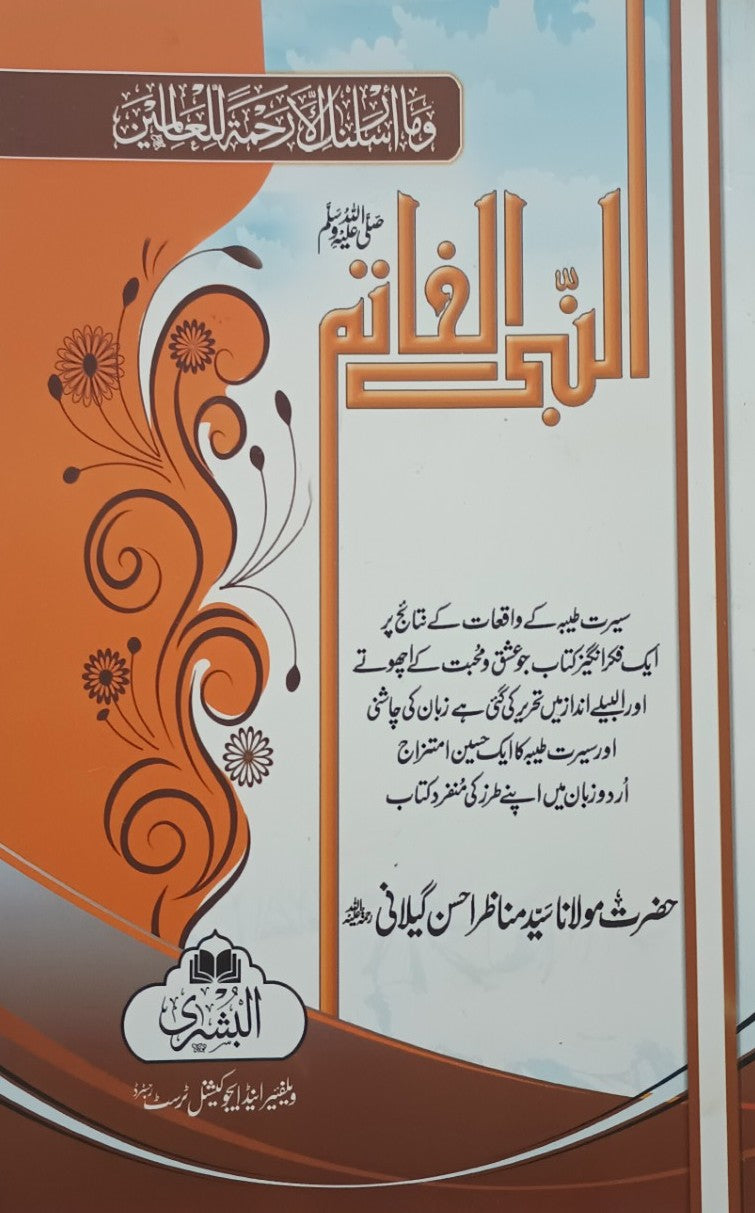 وَمَا أَرْسَلْنٰكَ إِلَّا رَحْمَةً لِّلْعَالَمِيْنَ
صَلَّى اللّٰهُ عَلَيْهِ وَسَلَّمَ
النَّبِىُّ الخَاتم
سیرت طیبہ کے واقعات کے نتائج پر
ایک فکر انگیز کتاب جو عشق و محبت کے اچھوتے
اور البیلے انداز میں تحریر کی گئی ہے زبان کی چاشنی
اور سیرت طیبہ کا ایک حسین امتزاج
اُردو زبان میں اپنے طرز کی مُنفرد کتاب
حضرت مولانا سَیّد مناظر احسن گیلانی رحمۃ اللہ علیہ
البُشریٰ
ویلفیئر اینڈ ایجوکیشنل ٹرسٹ رجسٹرڈ